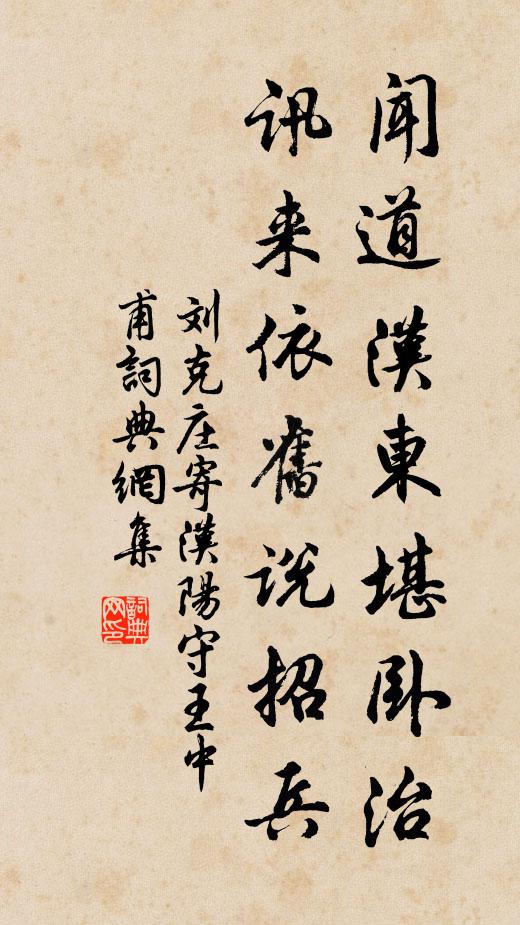 聞道漢東堪卧治
訊来依舊説招兵
刘克庄寄漢陽守王中
甫詞典網集
詞典
网印